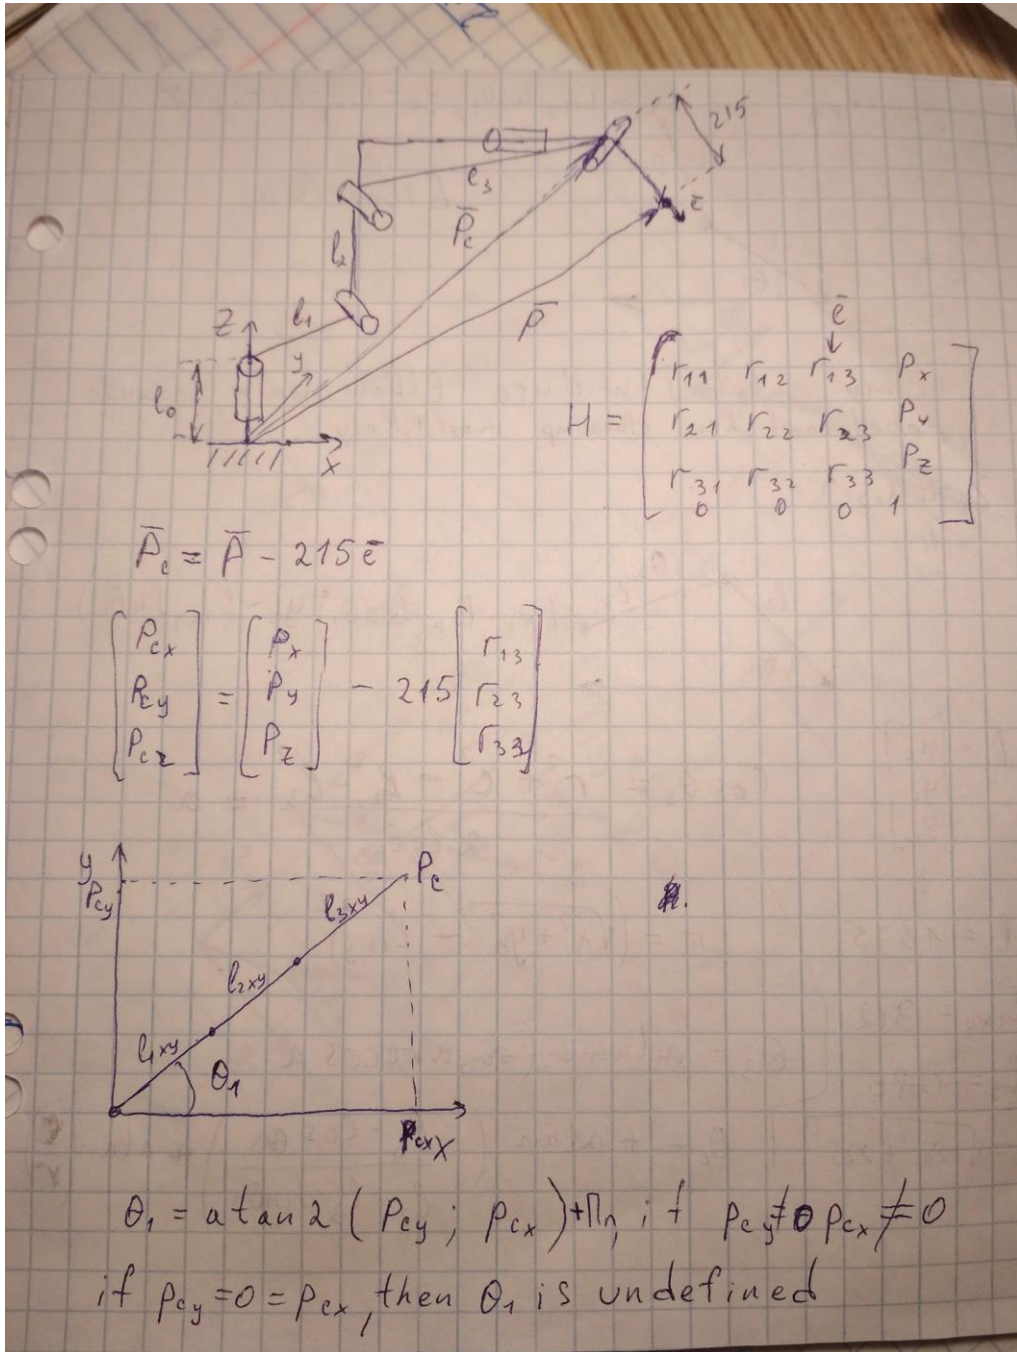 215
l₃
P̄c
ē
l₂
P̄
Z
l₁
y
l₀
x
ē
H = [ r₁₁ r₁₂ r₁₃ Px
r₂₁ r₂₂ r₂₃ Py
r₃₁ r₃₂ r₃₃ Pz
0 0 0 1 ]
P̄c = P̄ - 215 ē
[ Pcx ] [ Px ] [ r₁₃ ]
[ Pcy ] = [ Py ] - 215 [ r₂₃ ]
[ Pcz ] [ Pz ] [ r₃₃ ]
y
Pcy
Pc
l₃xy
l₂xy
l₁xy
θ₁
Pcx x
θ₁ = atan2 (Pcy ; Pcx)+Πn, if pcy≠0 pcx≠0
if pcy=0=pcx, then θ₁ is undefined